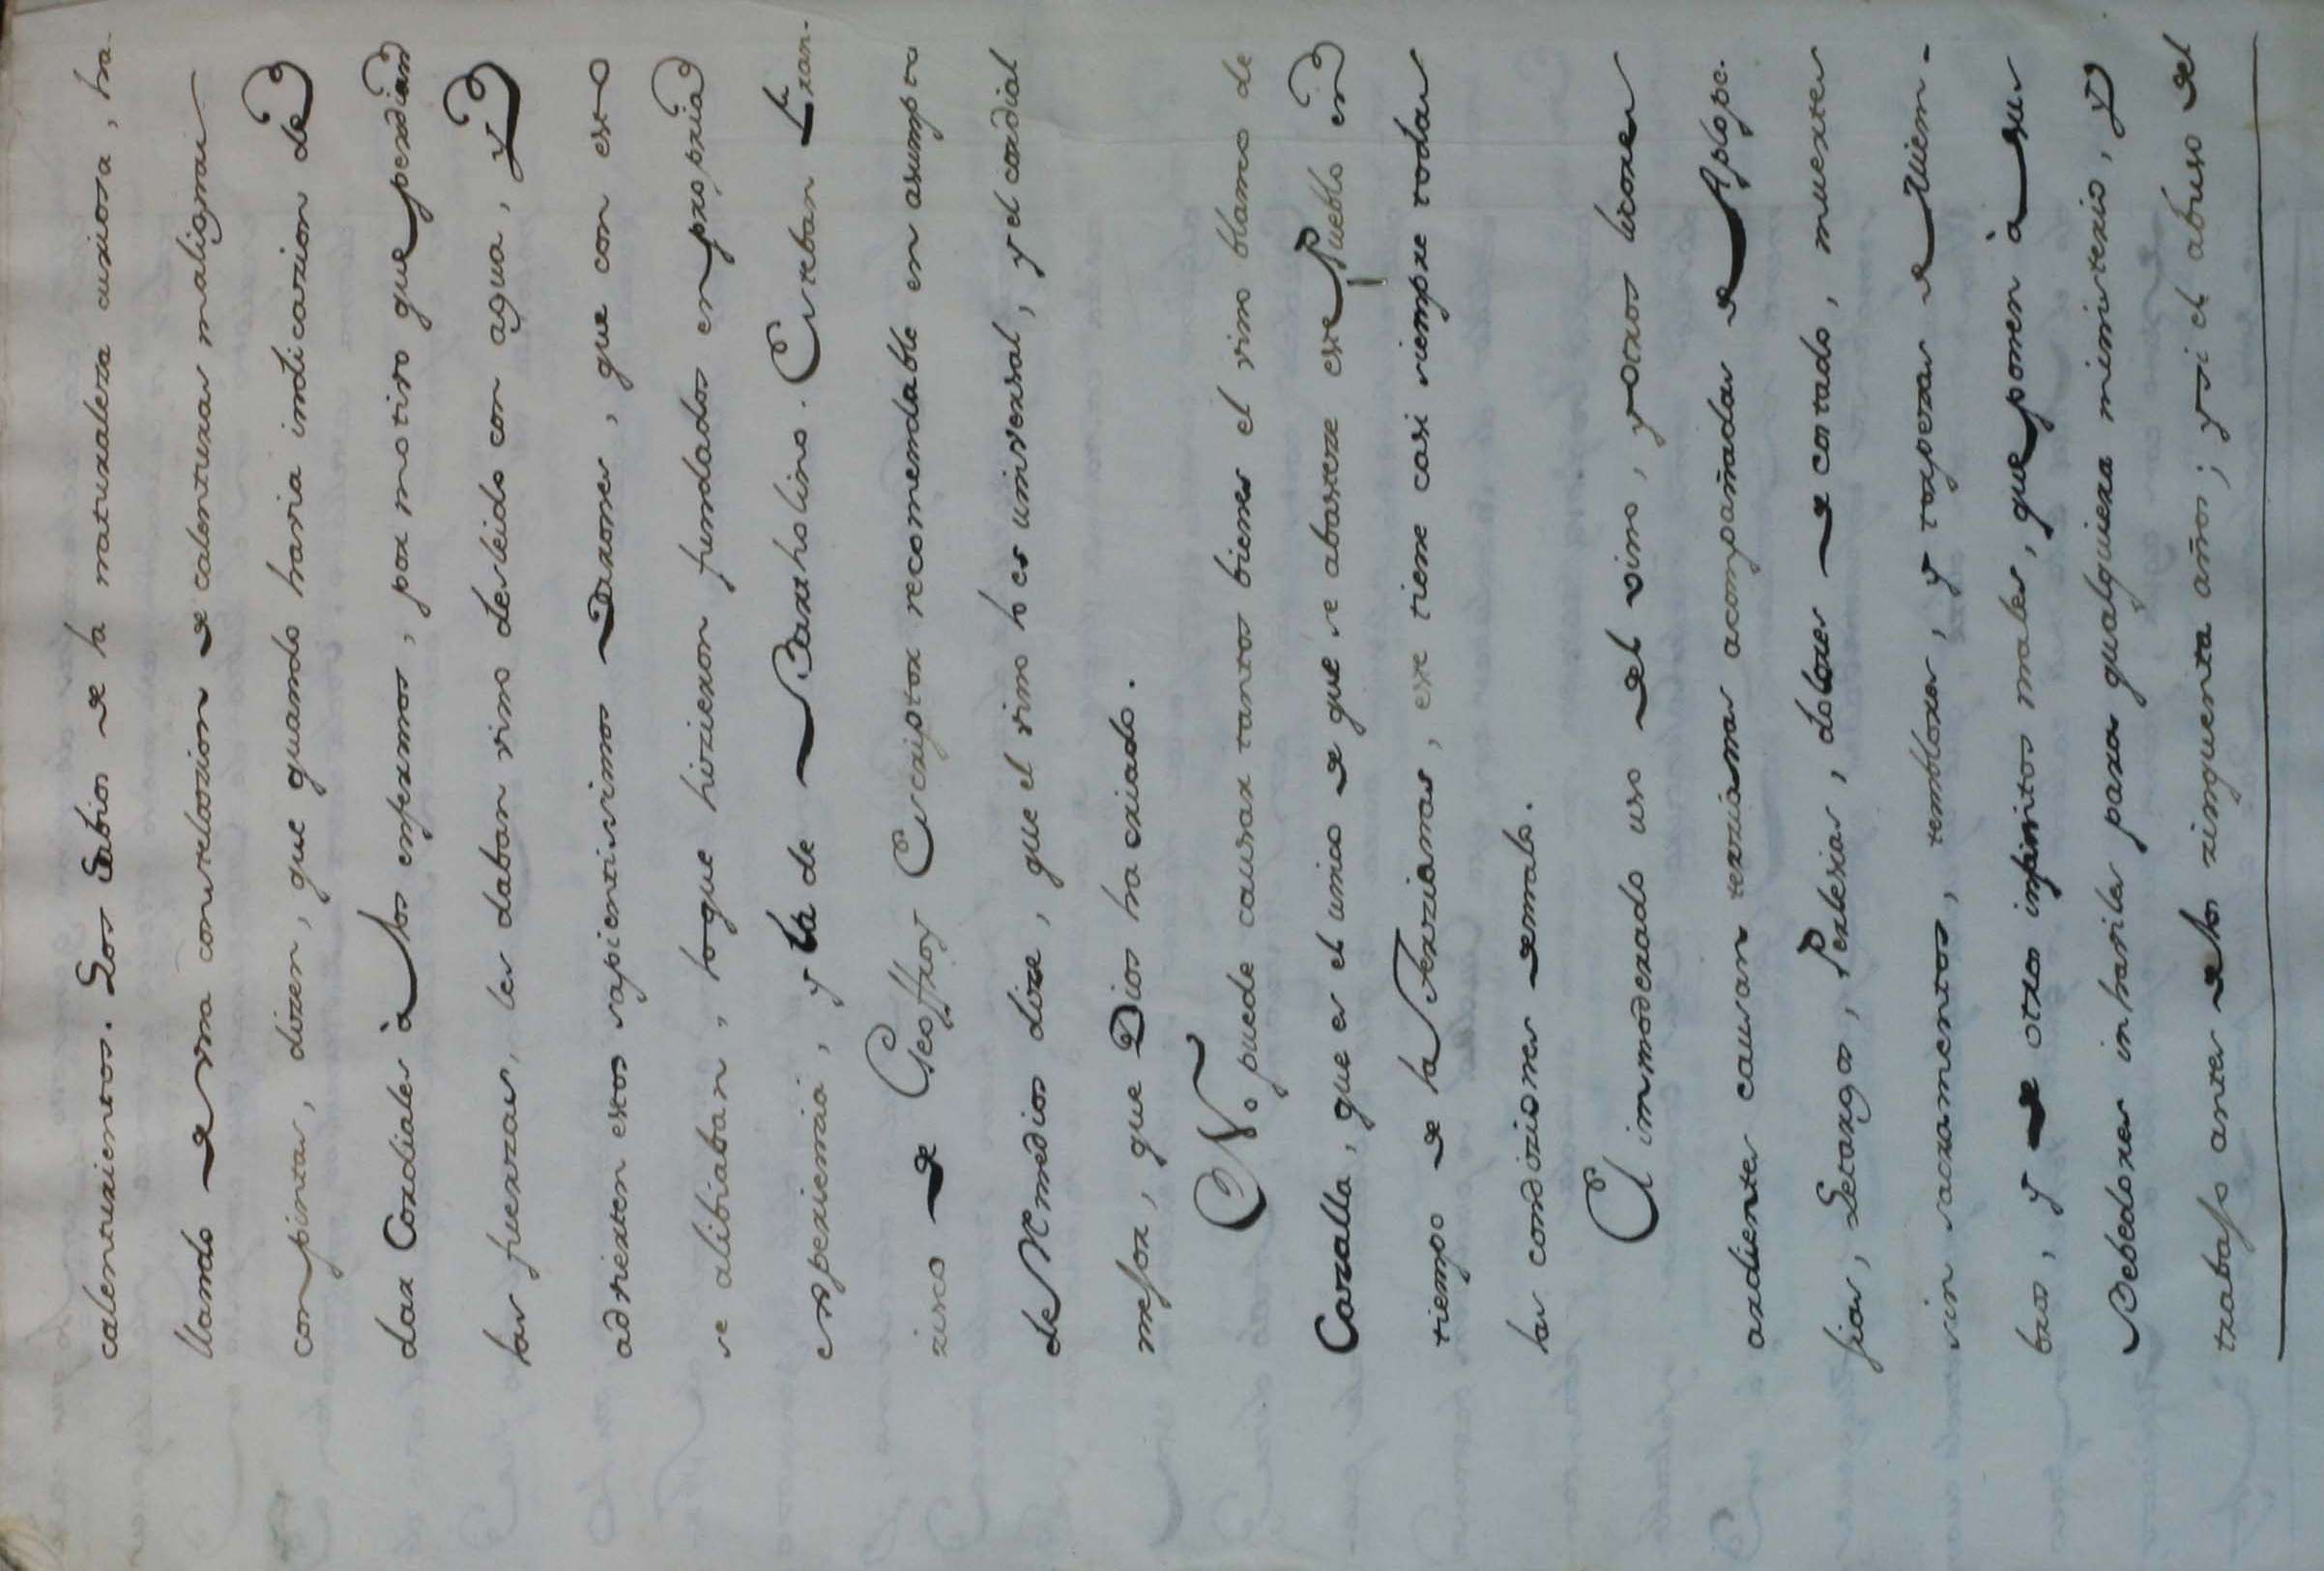 calenturientos. Los Sabios de la naturaleza curiosa, ha-
llando de una constelazion de calenturas malignas
con pintas, dizen, que quando havia indicazion de
dar Cordiales à los enfermos, por motivo que perdian
las fuerzas, les daban vino desleido con agua, y
advierten estos sapientisimos Varones, que con esto
se alibiaban, lo que hizieron fundados en propria
experiencia, y la de Bartholino. Esteban Fran-
zisco de Geoffroy Escriptor recomendable en asumpto
de Remedios dize, que el vino lo es universal, y el cordial
mejor, que Dios ha criado.
No puede causar tantos bienes el vino blanco de
Cazalla, que es el unico de que se abasteze este Pueblo en
tiempo de las Terzianas, este tiene casi siempre todas
las condiziones de malo.
El immoderado uso del vino, y otros licores
ardientes causan terzianas acompañadas de Aplope-
sias, Letargos, Perlesias, dolores de costado, muertes
sin sacramentos, temblores, y torpezas de Miem-
bros, y de otros infinitos males, que ponen à sus
Bebedores inhaviles para qualquiera ministerio, y
trabajo antes de los zinquenta años; y si el abuso del